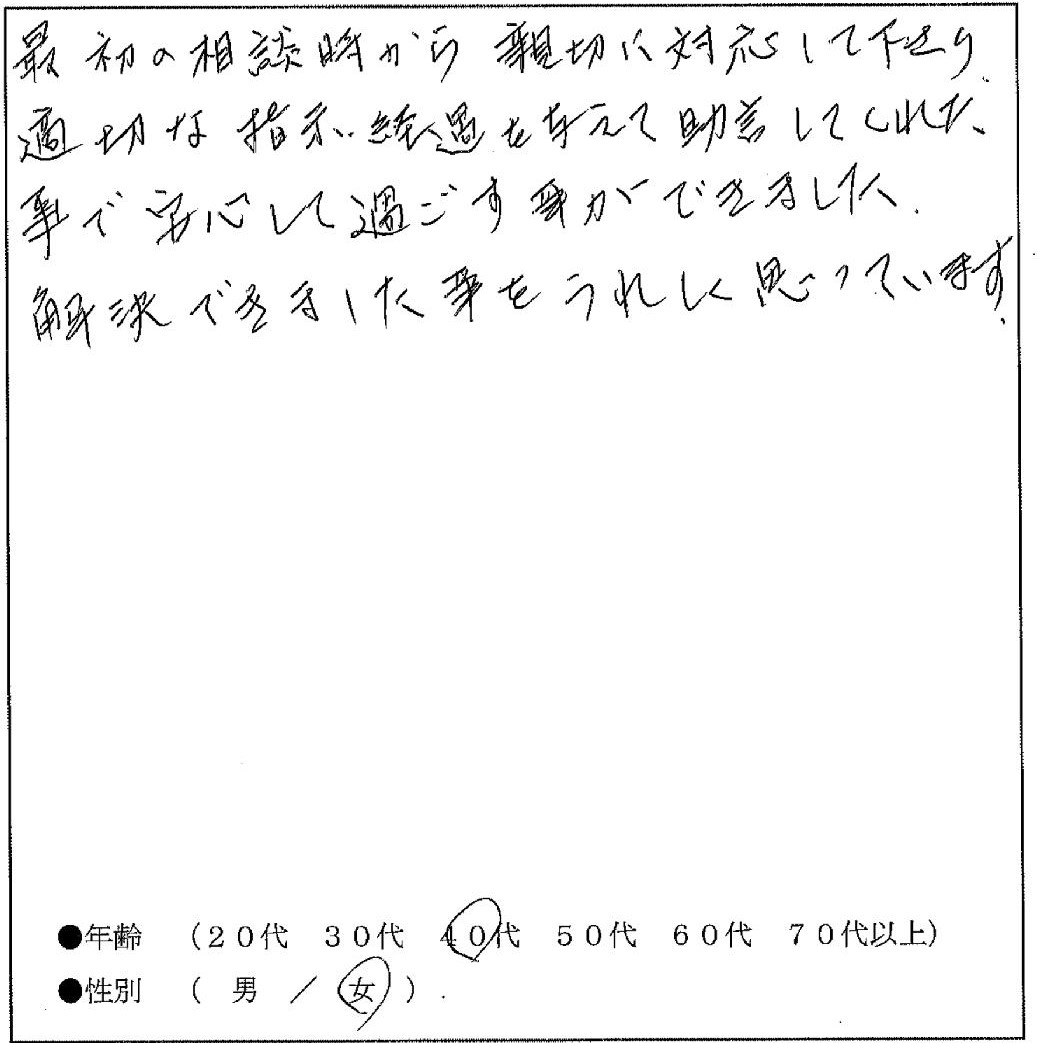 最初の相談時から親切に対応して下さり、
適切な指示、経過を与えて助言してくれた、
事で安心して過ごす事ができました。
解決できました事をうれしく思っています。
●年齢 （２０代 ３０代 ４０代 ５０代 ６０代 ７０代以上）
●性別 （ 男 ／ 女 ）